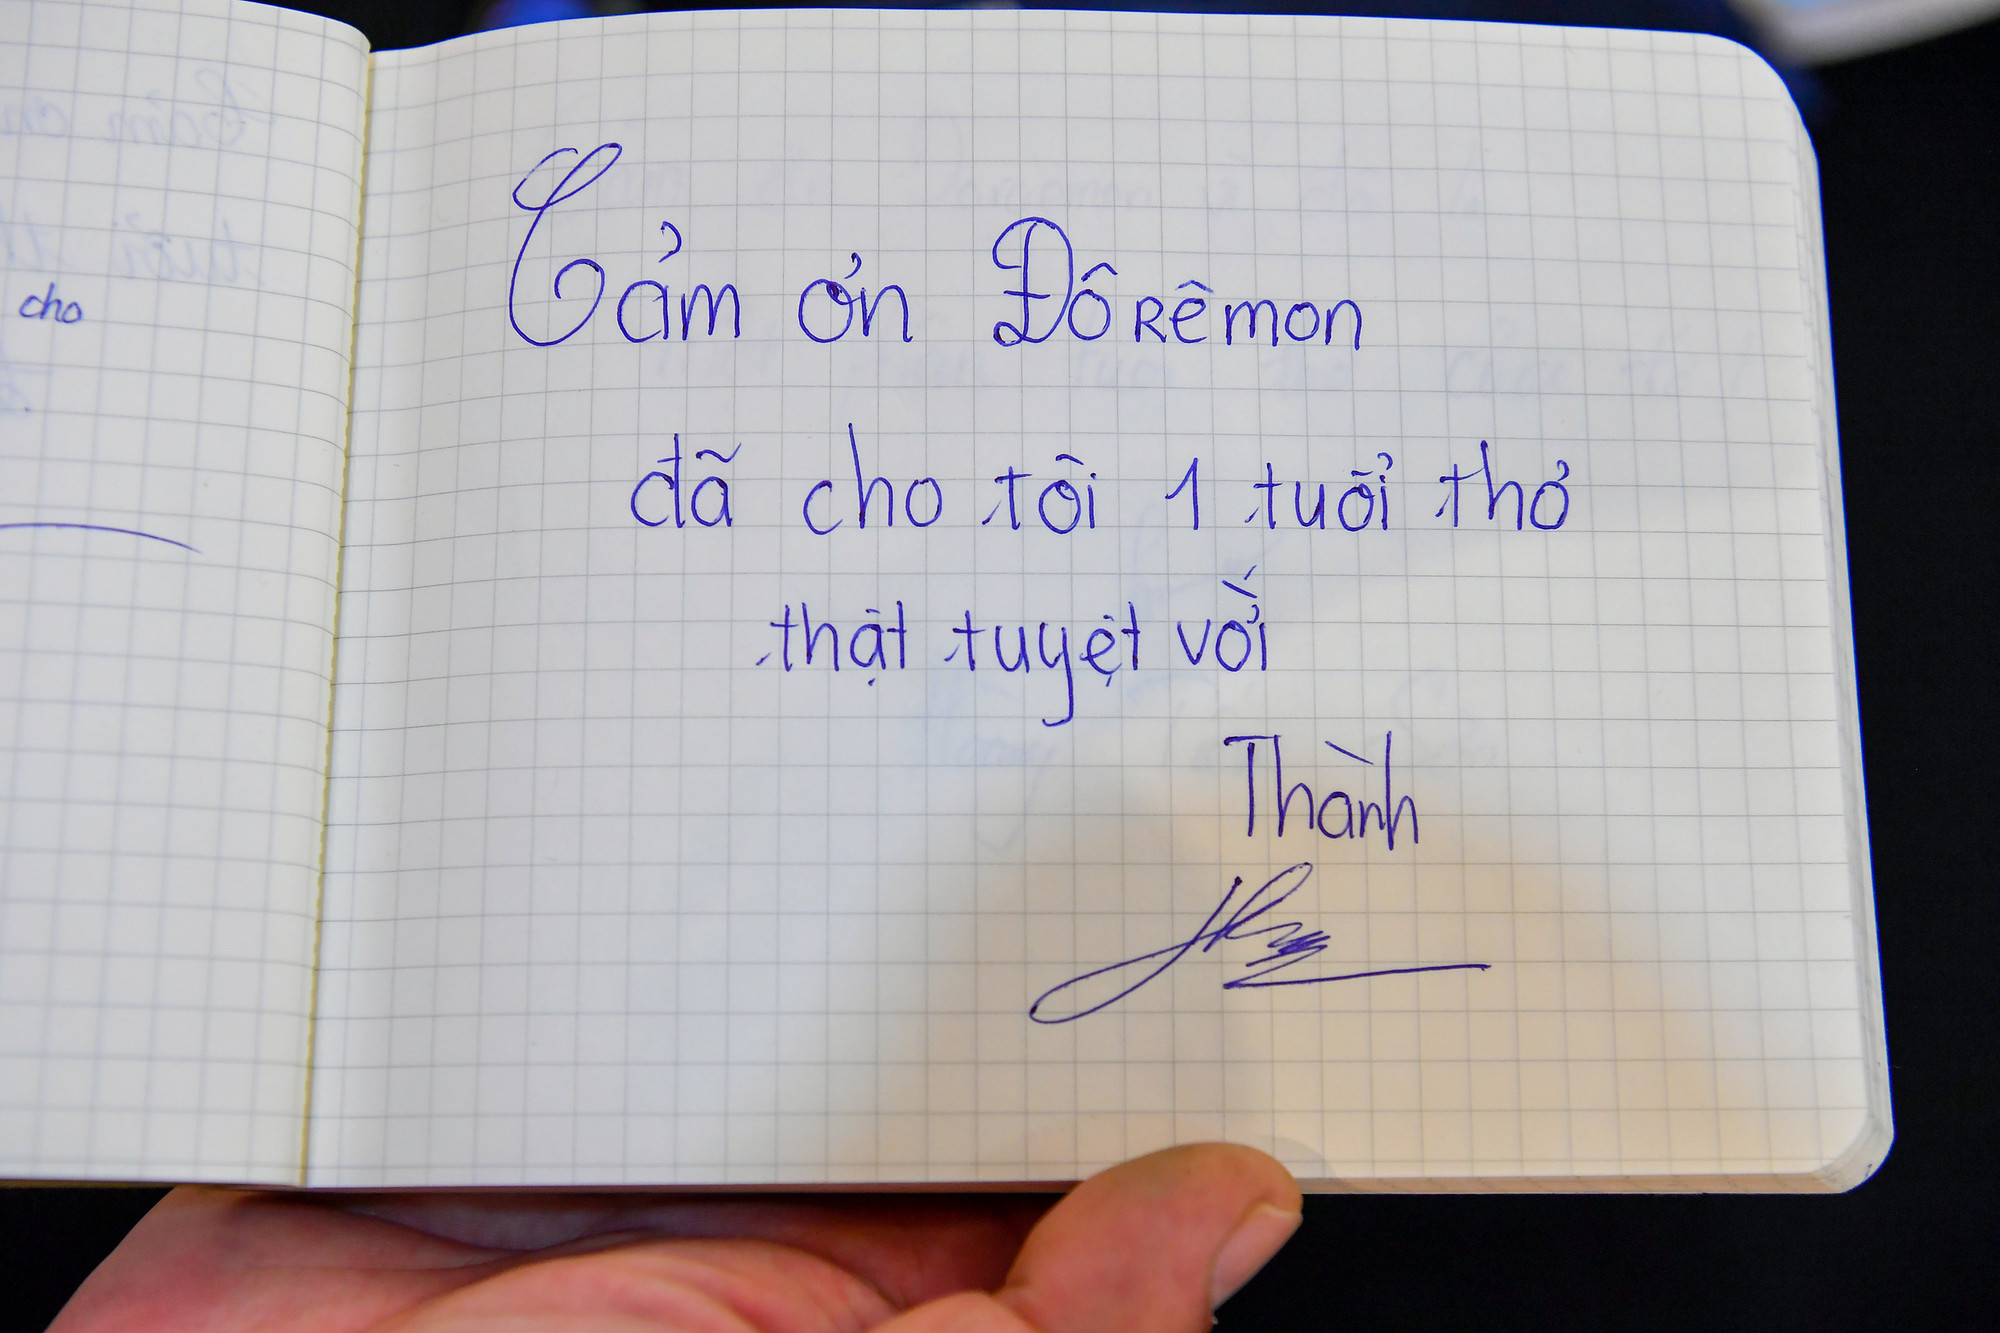 cho
Cảm ơn Đôrêmon
đã cho tôi 1 tuổi thơ
thật tuyệt vời
Thành